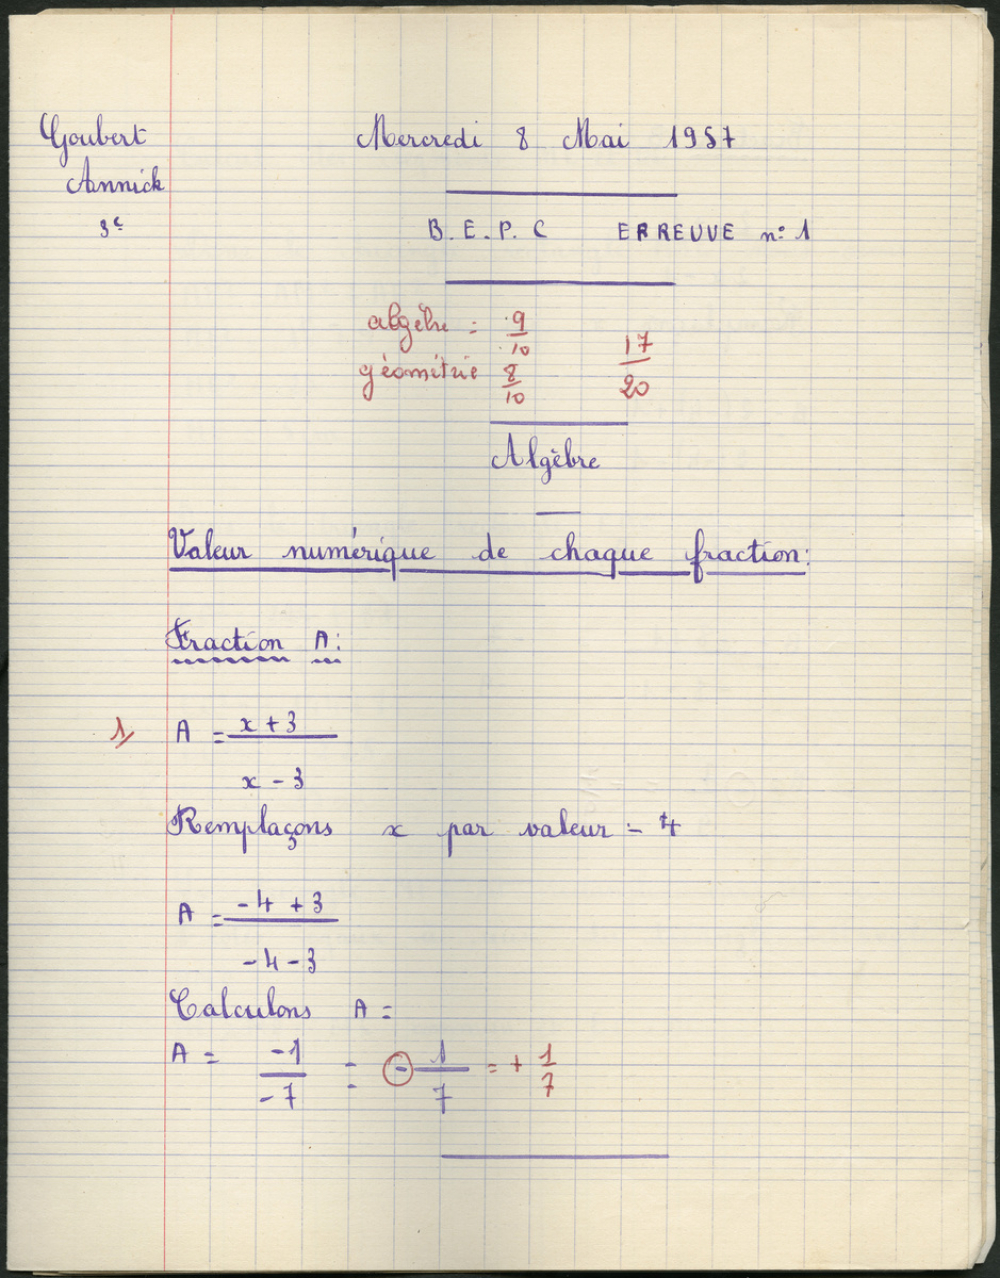 Goubert Mercredi 8 Mai 1957
Annick
3e B.E.P.C EPREUVE n° 1
algèbre = 9/10
géométrie 8/10 17/20
Algèbre
Valeur numérique de chaque fraction:
Fraction A:
1/ A = x + 3 / x - 3
Remplaçons x par valeur - 4
A = -4 + 3 / -4 - 3
Calculons A =
A = -1 / -7 = - 1 / 7 = + 1 / 7